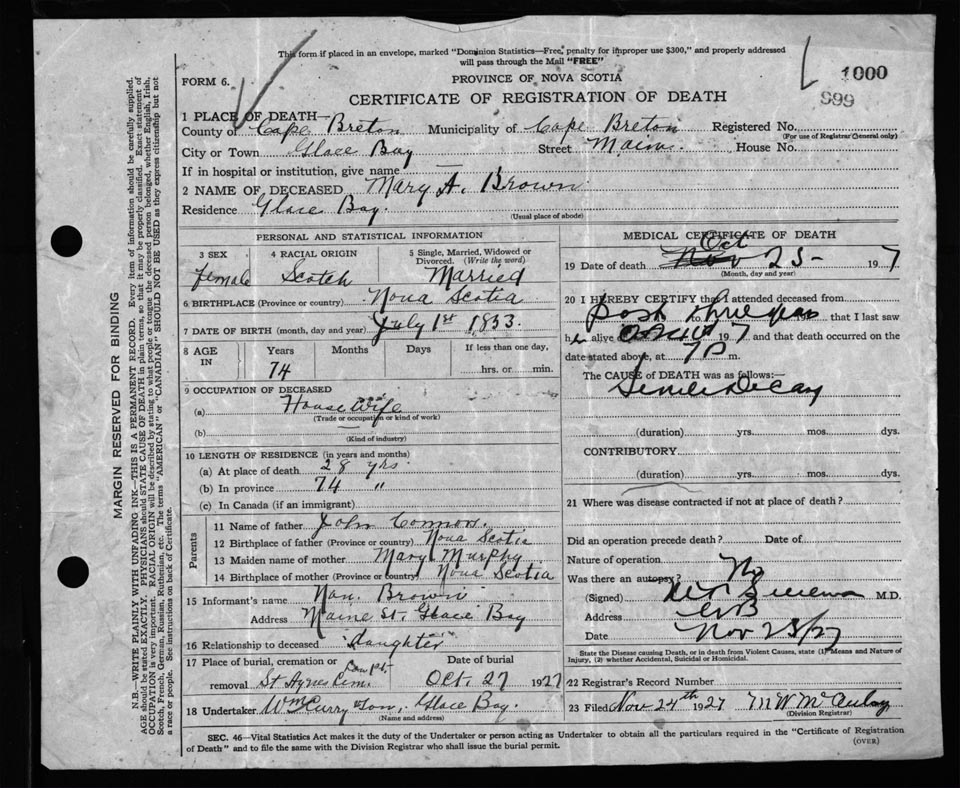 This form if placed in an envelope, marked "Dominion Statistics—Free, penalty for improper use $300," and properly addressed
will pass through the Mail "FREE"
FORM 6.
PROVINCE OF NOVA SCOTIA
1000
999
CERTIFICATE OF REGISTRATION OF DEATH
1 PLACE OF DEATH—
County of Cape Breton Municipality of Cape Breton Registered No.
(For use of Registrar General only)
City or Town Glace Bay Street Main House No.
If in hospital or institution, give name —
2 NAME OF DECEASED Mary A. Brown
Residence Glace Bay.
(Usual place of abode)
PERSONAL AND STATISTICAL INFORMATION
3 SEX 4 RACIAL ORIGIN 5 Single, Married, Widowed or
Divorced. (Write the word)
female Scotch Married
6 BIRTHPLACE (Province or country) Nova Scotia
7 DATE OF BIRTH (month, day and year) July 1st 1853.
8 AGE IN Years Months Days If less than one day,
74 hrs. or min.
9 OCCUPATION OF DECEASED
(a) House Wife
(Trade or occupation or kind of work)
(b)
(Kind of industry)
10 LENGTH OF RESIDENCE (in years and months)
(a) At place of death 28 yrs.
(b) In province 74 "
(c) In Canada (if an immigrant)
Parents
11 Name of father John Connors.
12 Birthplace of father (Province or country) Nova Scotia
13 Maiden name of mother Mary Murphy
14 Birthplace of mother (Province or country) Nova Scotia
15 Informant's name Nan. Brown
Address Maine St. Glace Bay
16 Relationship to deceased Daughter
17 Place of burial, cremation or Date of burial
removal St Agnes Cem. Oct. 27 1927
18 Undertaker Glace Bay.
(Name and address)
MEDICAL CERTIFICATE OF DEATH
19 Date of death Nov Oct 25 - 19 7
(Month, day and year)
20 I HEREBY CERTIFY that I attended deceased from
past three years that I last saw
her alive 19 7 and that death occurred on the
date stated above, at 7 P m.
The CAUSE of DEATH was as follows:
Senile Decay
(duration) yrs. mos. dys.
CONTRIBUTORY
(duration) yrs. mos. dys.
21 Where was disease contracted if not at place of death?
Did an operation precede death? Date of
Nature of operation
Was there an autopsy? No
(Signed) M.D.
Address GB
Date Nov 23/27
State the Disease causing Death, or in death from Violent Causes, state (1) Means and Nature of
Injury, (2) whether Accidental, Suicidal or Homicidal.
22 Registrar's Record Number
23 Filed Nov 24th 1927 M W McAulay
(Division Registrar)
SEC. 46—Vital Statistics Act makes it the duty of the Undertaker or person acting as Undertaker to obtain all the particulars required in the "Certificate of Registration
of Death" and to file the same with the Division Registrar who shall issue the burial permit.
(OVER)
MARGIN RESERVED FOR BINDING
N.B.—WRITE PLAINLY WITH UNFADING INK—THIS IS A PERMANENT RECORD. Every item of information should be carefully supplied.
AGE should be stated EXACTLY. PHYSICIANS should STATE CAUSE OF DEATH in plain terms, so that it may be properly classified. Exact statement of
OCCUPATION is very important. RACIAL ORIGIN will be described by stating to what people or tongue the deceased person belonged, whether English, Irish,
Scotch, French, German, Russian, Ruthenian, etc. The terms "AMERICAN" or "CANADIAN" SHOULD NOT BE USED as they express citizenship but not
a race or people. See instructions on back of Certificate.